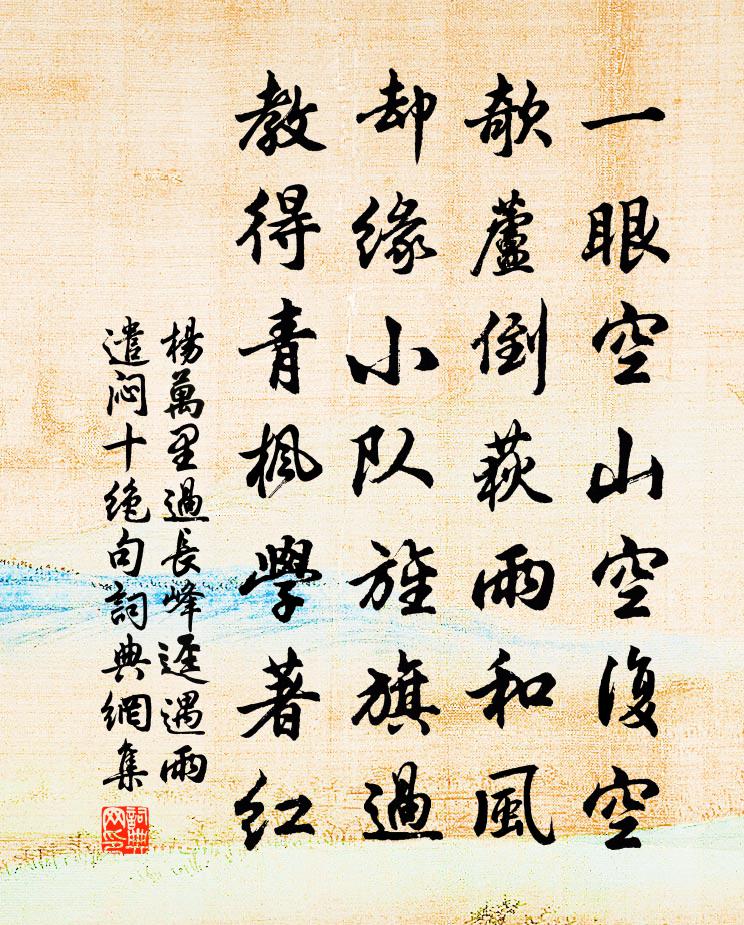 一眼空山空復空
欹蘆倒荻雨和風
却緣小队旌旗過
教得青楓學著紅
楊萬里過長峰逕遇雨
遣闷十絕句詞典網集
詞典
网印